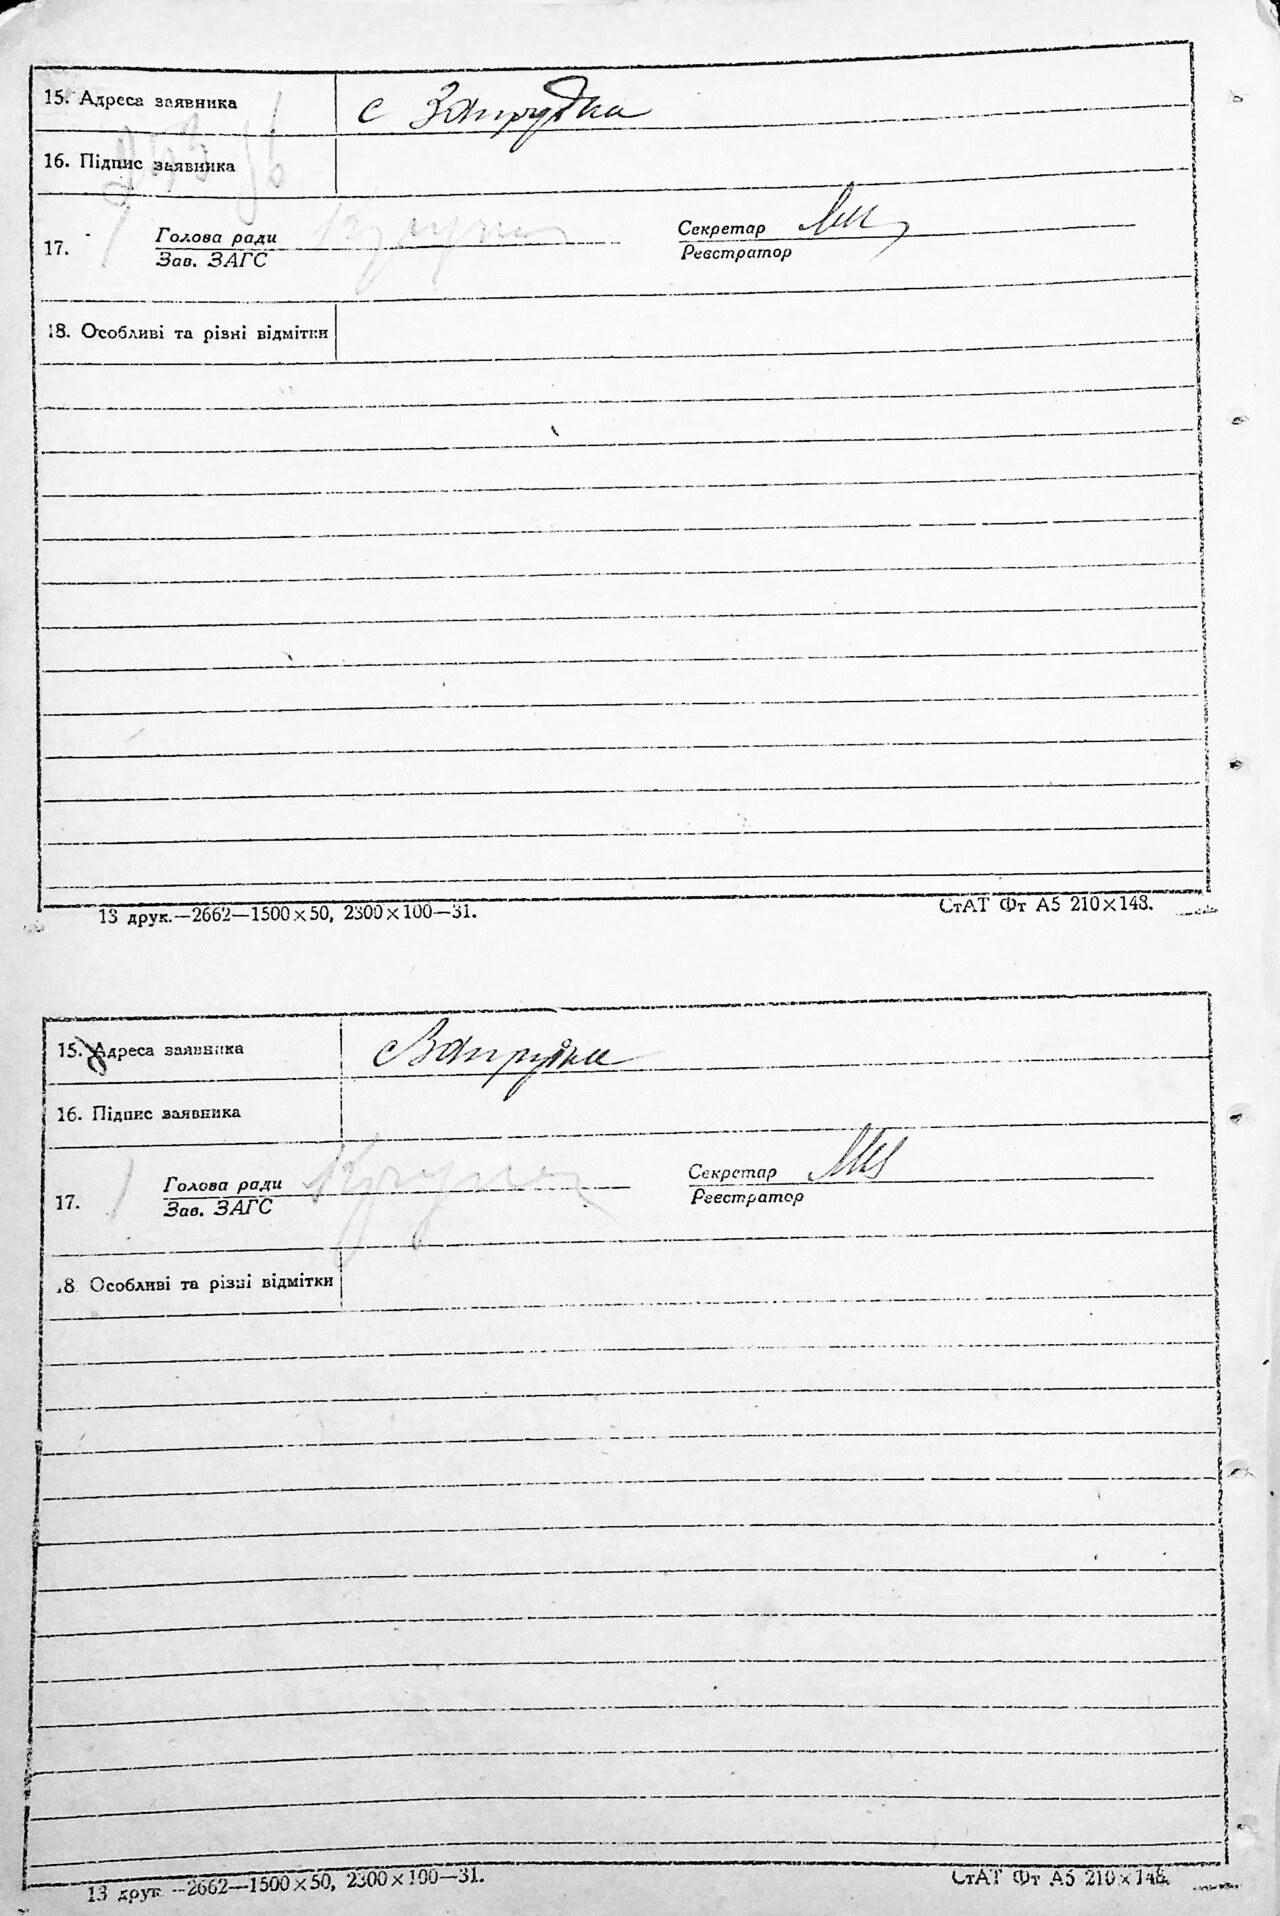 15. Адреса заявника с Запрудка
16. Підпис заявника
Голова ради Секретар
17. Зав. ЗАГС Реєстратор
18. Особливі та різні відмітки
13 друк.—2662—1500×50, 2300×100—31. СтАТ Фт А5 210×148.
15. Адреса заявника с Запрудка
16. Підпис заявника
Голова ради Секретар
17. Зав. ЗАГС Реєстратор
18 Особливі та різні відмітки
13 друк —2662—1500×50, 2300×100—31. СтАТ Фт А5 210×148.